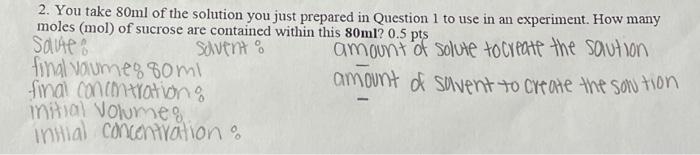 2. You take 80ml of the solution you just prepared in Question 1 to use in an experiment. How many
moles (mol) of sucrose are contained within this 80ml? 0.5 pts
Solute: Solvent: amount of solute to create the solution
final volume: 80ml –
final concentration: amount of solvent to create the solution
initial volume: –
initial concentration: